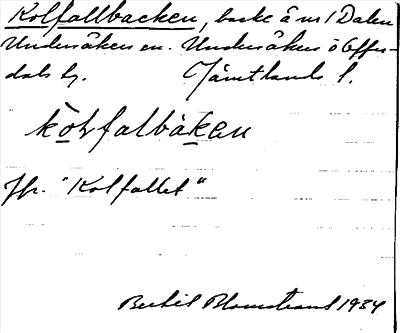 Kolfallbacken, backe å nr 1 Dalen
Undersåkers en. Undersåkers o Offer-
dals tg. Jämtlands l.
kòlfalbàkan
Jfr. "Kolfallet"
Bertil Blomstrand 1934